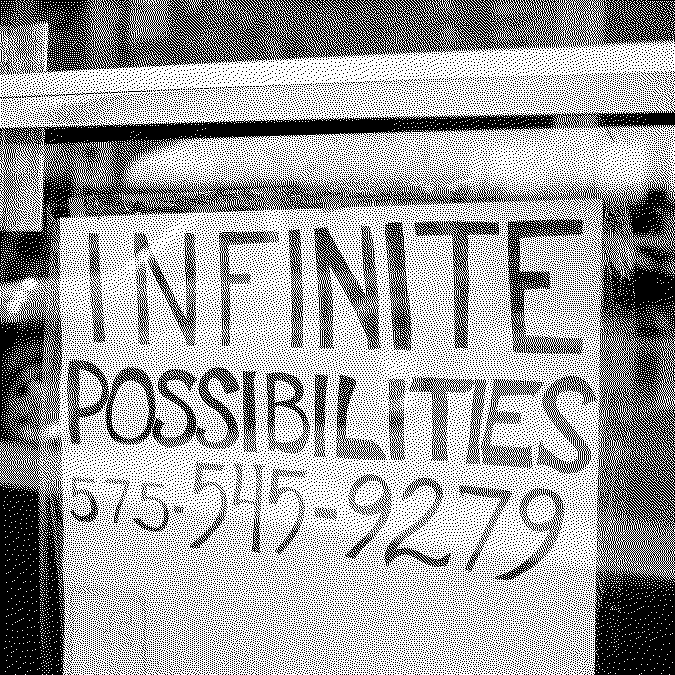 INFINITE
POSSIBILITIES
575-545-9279